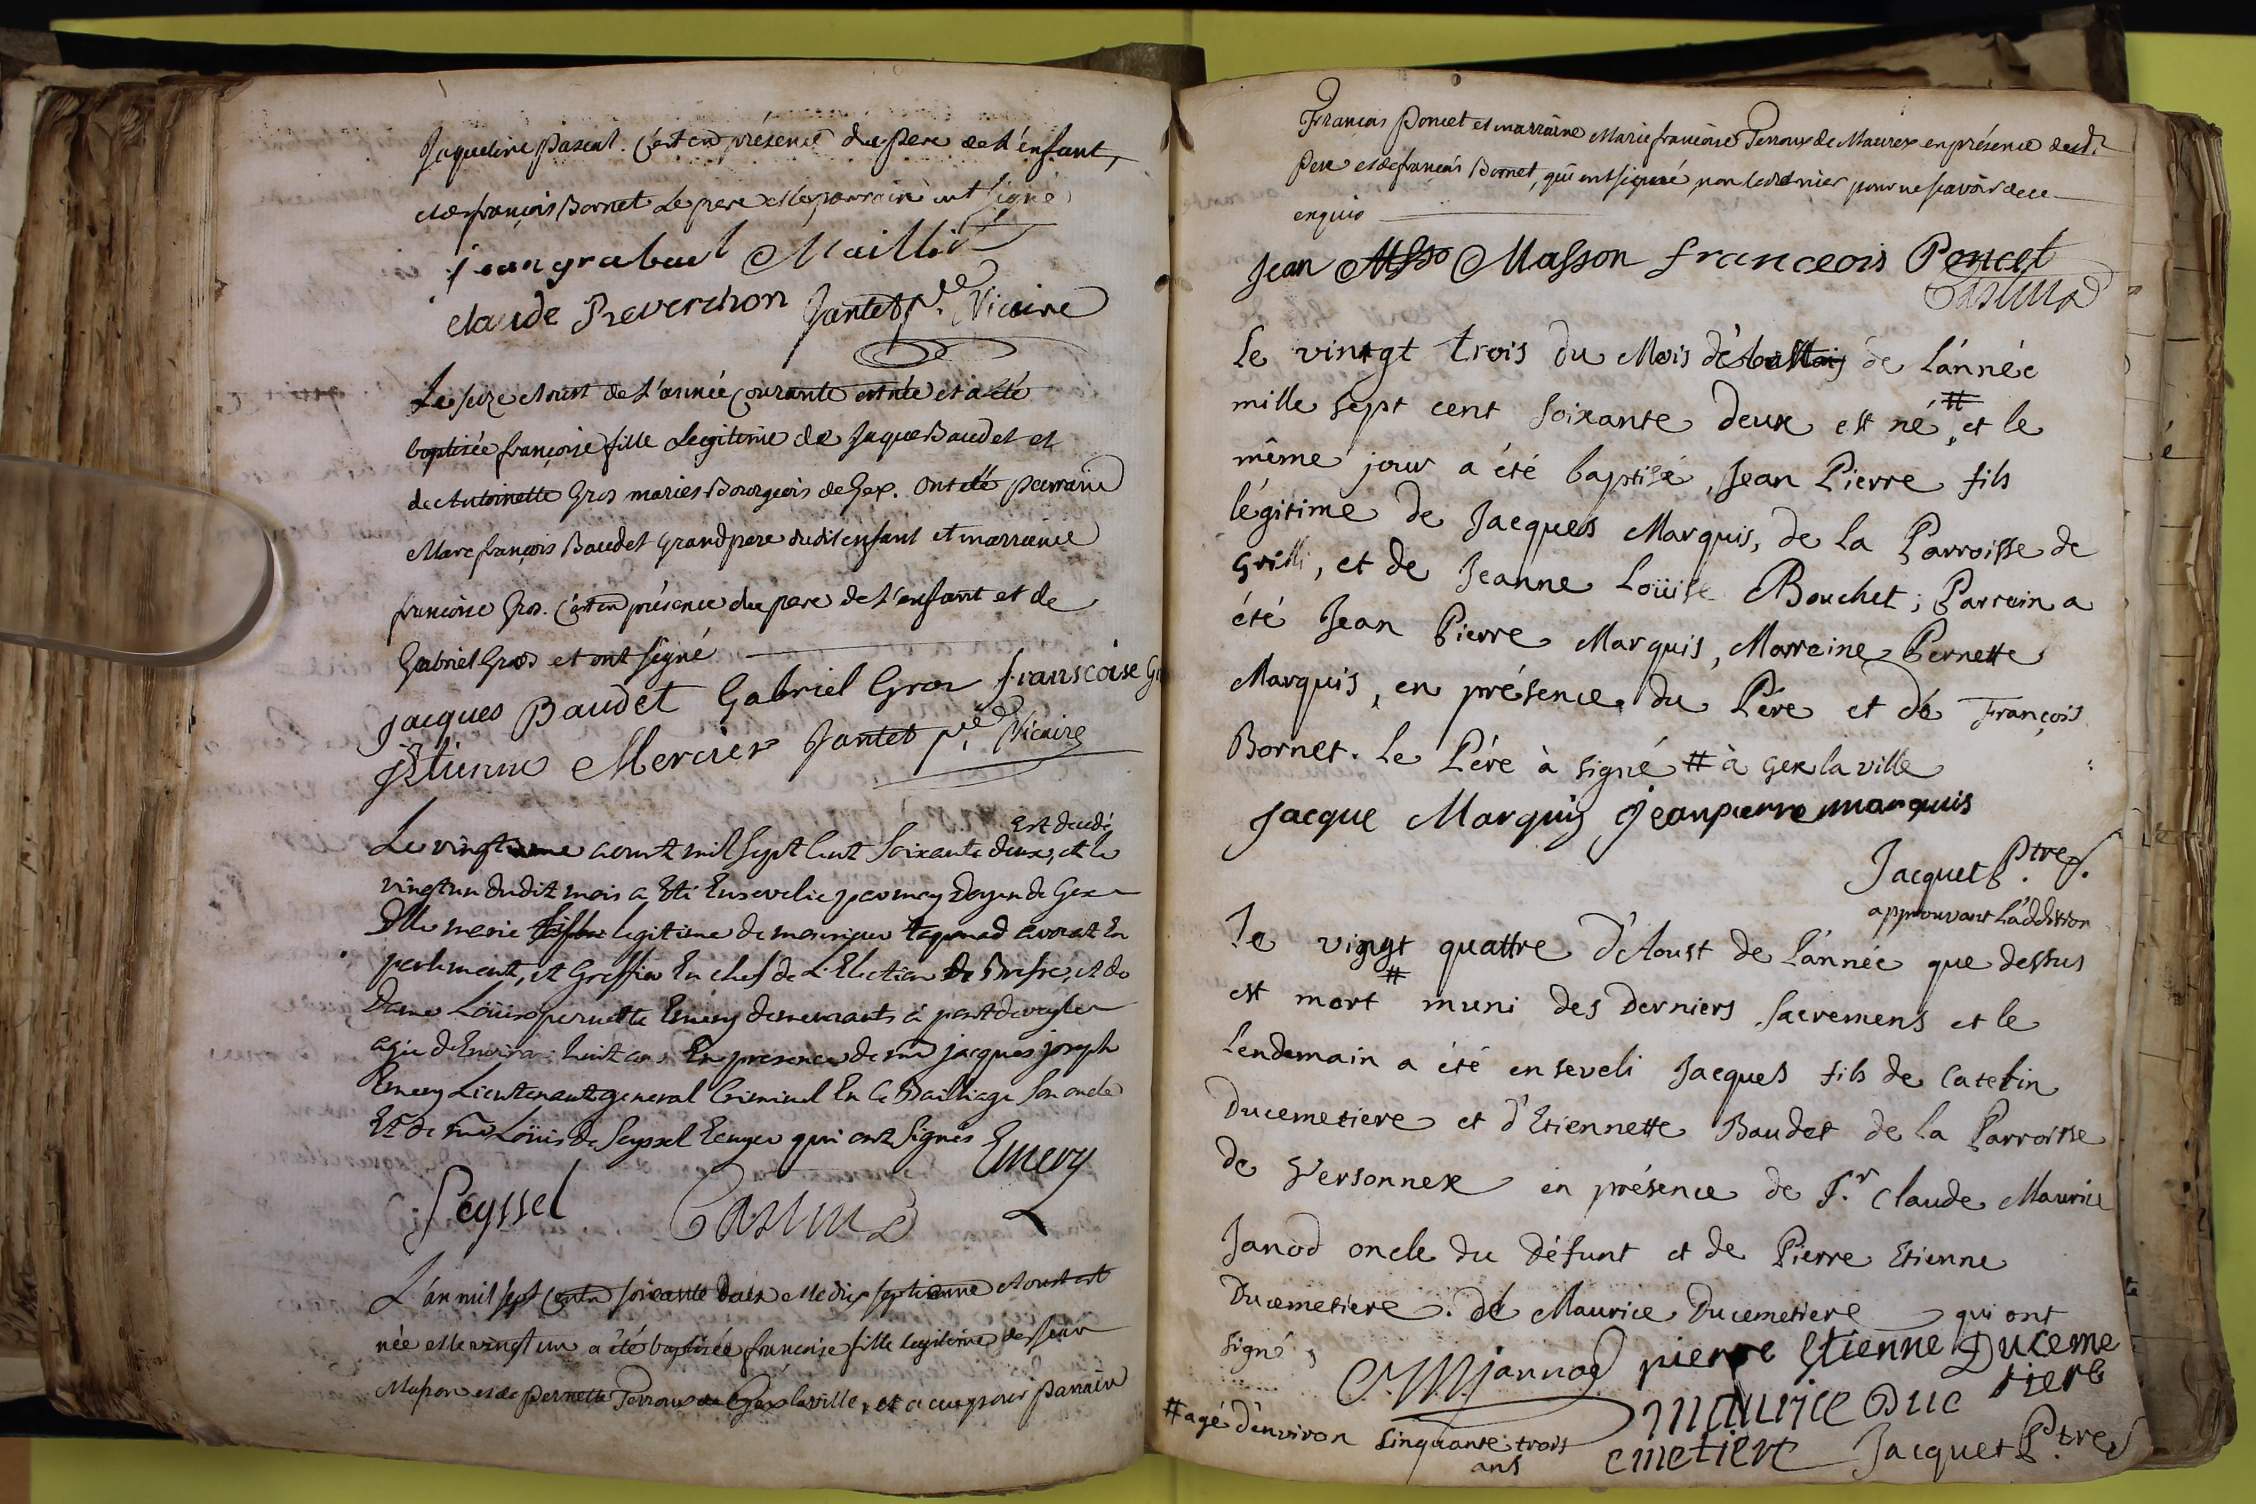 Jaqueline Pascal. C'est en présence du pere de l'énfant,
et de françois Bornet Le pere et le parrain ont signé
jean grabuel Maillet
claude Reverchon Jantet p.re Vicaire
Le seize Aoust de l'année courante est née et a été
baptisée françoise fille Legitime de Jaque Baudet et
de Antoinette Gros mariés Bourgeois de Gex. Ont été parrain
Marc françois Baudet Grand pere dudit enfant et marraine
françoise Gros. C'est en présence du pere de l'enfant et de
Gabriel Gros et ont signé
Jacques Baudet Gabriel Gros franscoise G
Etienne Mercier Jantet p.re Vicaire
est decedé
Le vingt aoust mil sept cent soixante deux, et le
vingt un dudit mois a eté Ensevelie par moy Doyen de Gex
Dlle marie legitime de monsieur avocat en
parlement, et Greffier en chef de L'Election de Bresse, et de
Dame Loüise pernette Emery demeurants à pont de veyle
agée d'Environ huit ans En presence de mr jacques joseph
Emery Lieutenant general Criminel En ce Bailliage son oncle
Et de mr Loüis de Seyssel Ecuyer qui ont signés Emery
Seyssel Castin
L'an mil sept cents soixante deux et le dix septieme Aoust est
née et le vingt un a été baptisée françoise fille legitime de Jean
Masson et de pernette Perroux de Gex la ville, et a eu pour parrain
François Poncet et marraine Marie françoise Perroux de Maurex en présence dud.t
Pere et de françois Bornet, qui ont signé, non le dernier pour ne scavoir de ce
enquis
Jean Masson franceois Poncet
Castin
Le vintgt trois du Mois d'Aoust de L'année
mille sept cent soixante deux est né,# et le
même jour a été baptisé, Jean Pierre fils
légitime de Jacques Marquis, de la Parroisse de
Grilli, et de Jeanne Loüise Bouchet; Parrein a
été Jean Pierre Marquis, Marreine Pernette
Marquis, en présence du Pére et de François
Bornet. Le Pére à signé # à Gex la ville
Jacque Marquis jean pierre marquis
Jacquet P.tre
approuvant L'addition
Le vingt quattre d'Aoust de L'année que dessus
est mort # muni des Derniers Sacremens et le
Lendemain a été enseveli Jacques fils de Catelin
Ducemetiere et d'Etiennette Baudet de la Parroisse
de Versonnex en présence de S.r Claude Maurice
Janod oncle du défunt et de Pierre Etienne
Ducemetiere. de Maurice Ducemetiere qui ont
signé,
C. M. jannod pierre Etienne Duceme
tiere
maurice Duc
emetiere Jacquet P.tre
# agé d'environ sinquante trois
ans